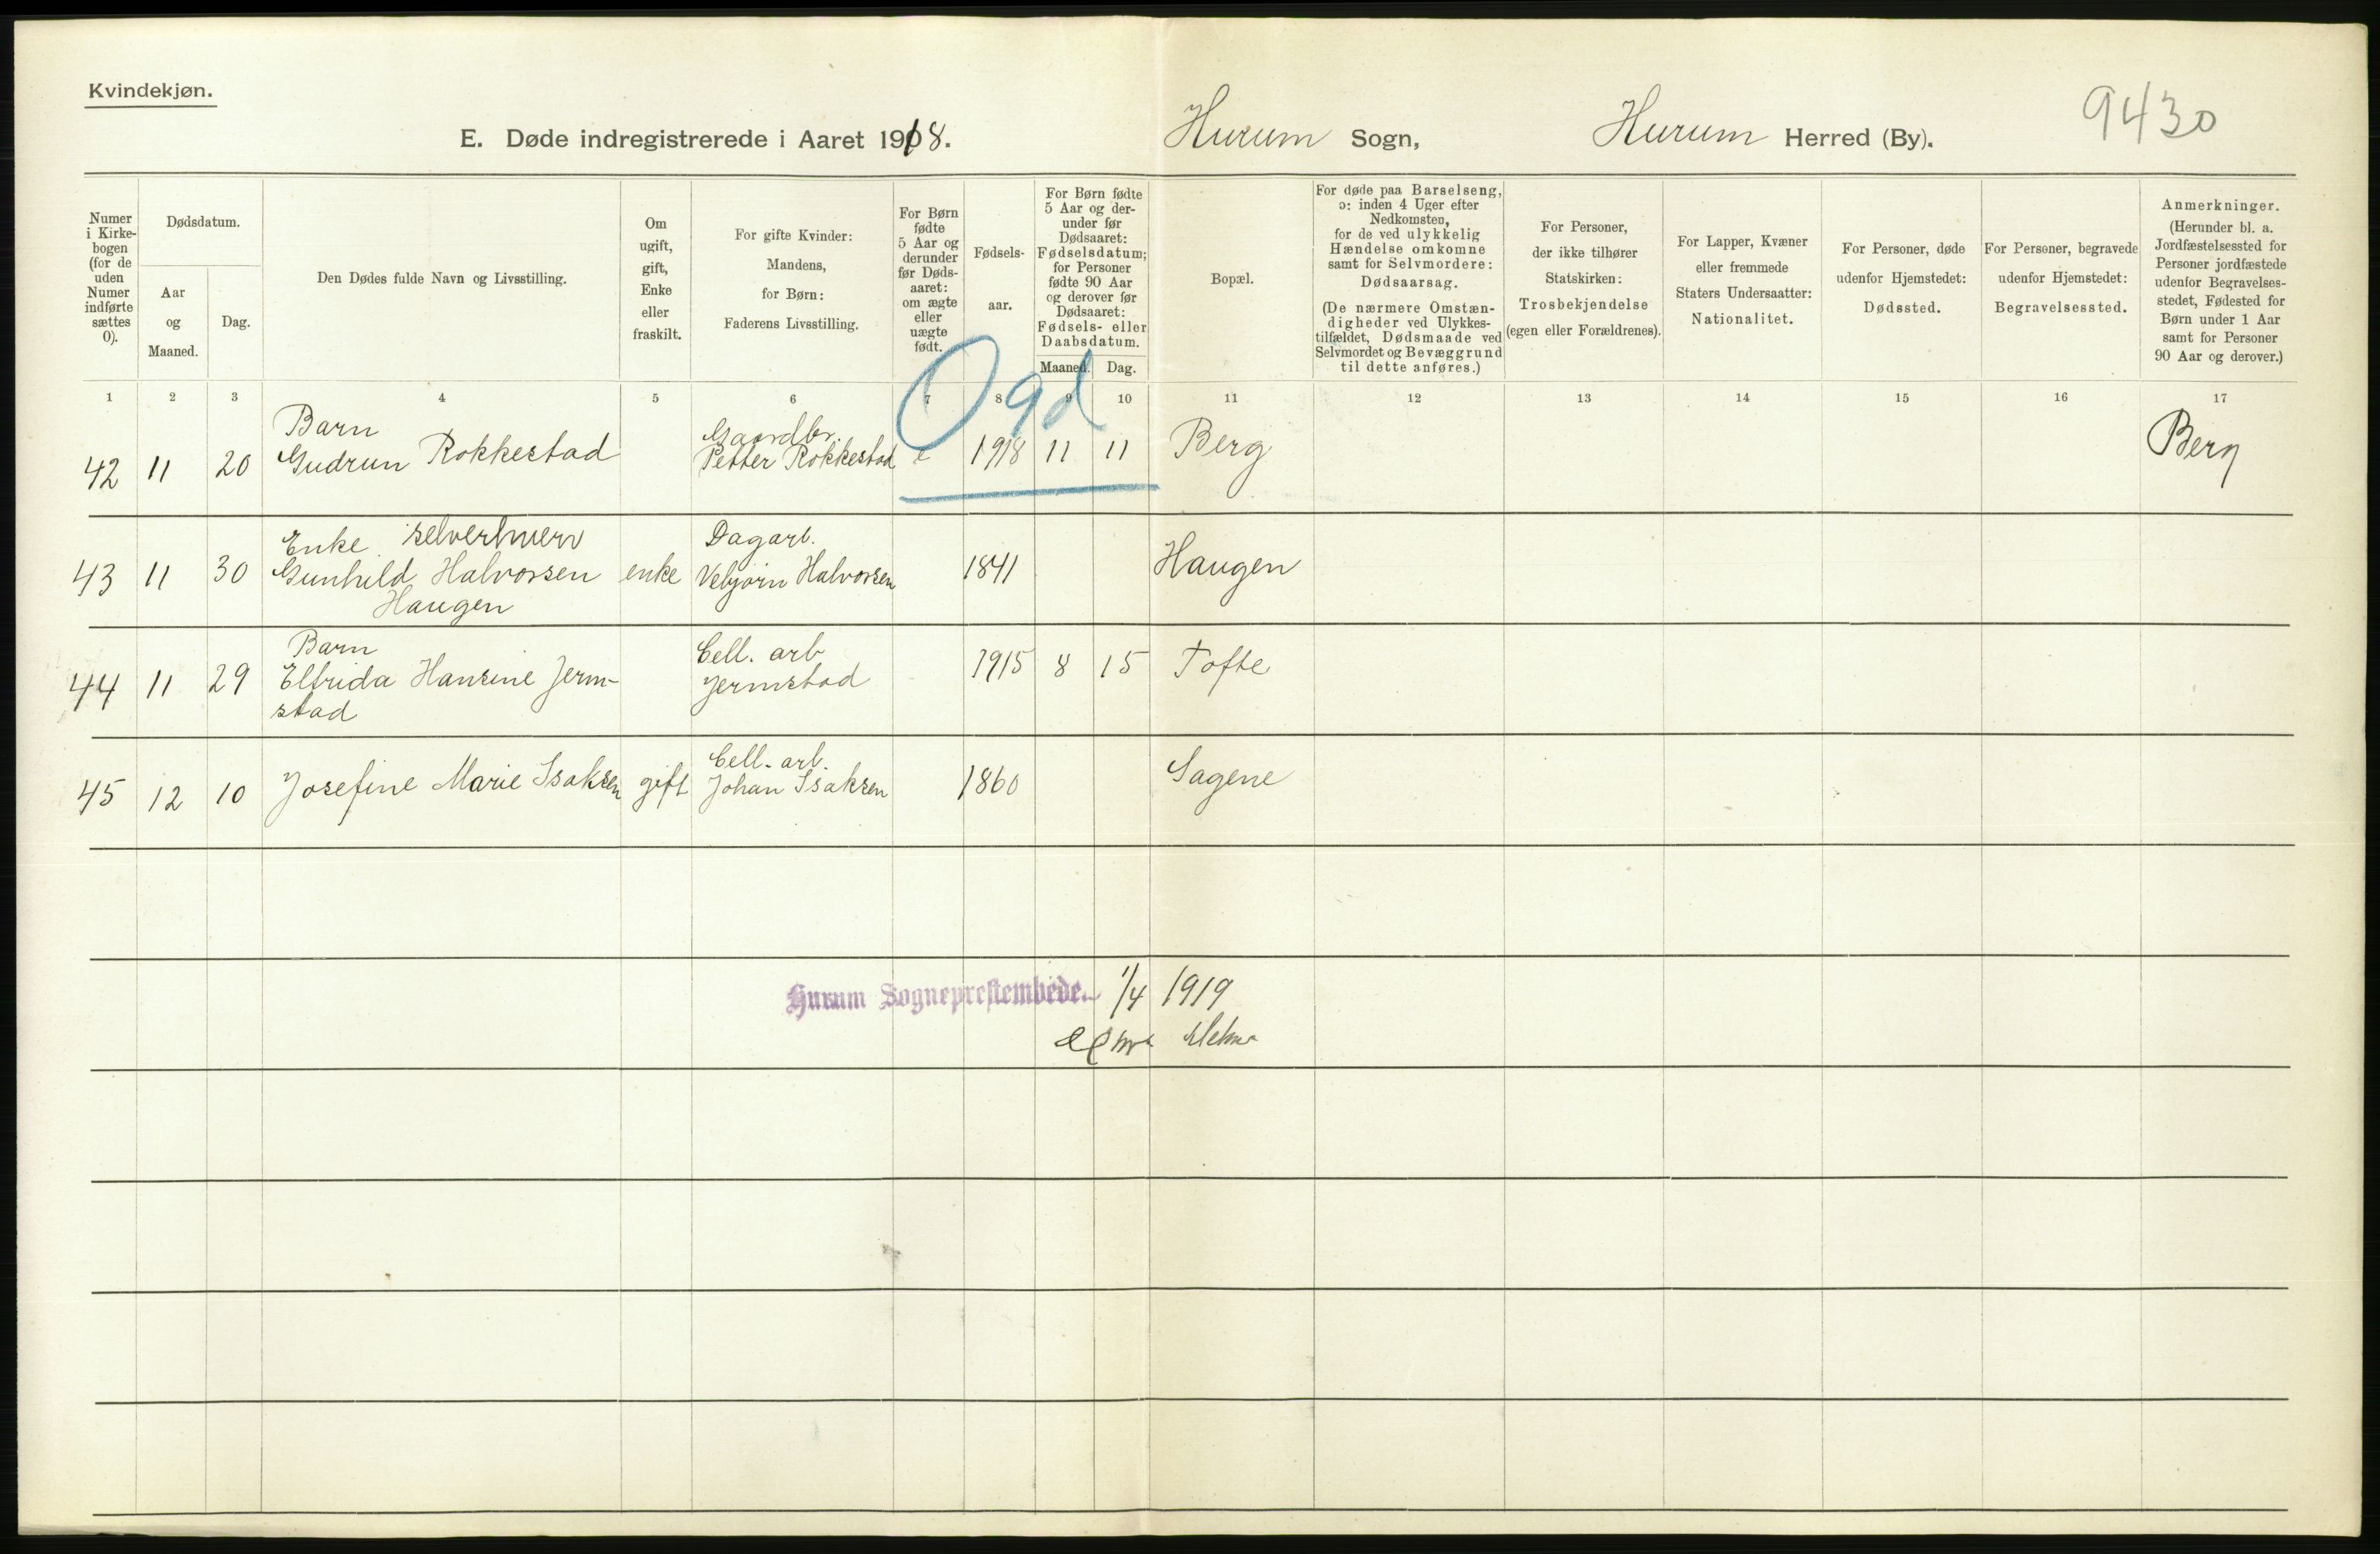 Kvindekjøn.
E. Døde indregistrerede i Aaret 1918. Hurum Sogn, Hurum Herred (By). 9430
Numer i Kirkebogen (for de uden Numer indførte sættes 0).
Dødsdatum.
Aar og Maaned.
Dag.
Den Dødes fulde Navn og Livsstilling.
Om ugift, gift, Enke eller fraskilt.
For gifte Kvinder: Mandens, for Børn: Faderens Livsstilling.
For Børn fødte 5 Aar og derunder før Dødsaaret: om ægte eller uægte født.
Fødselsaar.
For Børn fødte 5 Aar og derunder før Dødsaaret: Fødselsdatum; for Personer fødte 90 Aar og derover før Dødsaaret: Fødsels- eller Daabsdatum.
Maaned. Dag.
Bopæl.
For døde paa Barselseng, ɔ: inden 4 Uger efter Nedkomsten, for de ved ulykkelig Hændelse omkomne samt for Selvmordere: Dødsaarsag.
(De nærmere Omstændigheder ved Ulykkestilfældet, Dødsmaade ved Selvmordet og Bevæggrund til dette anføres.)
For Personer, der ikke tilhører Statskirken: Trosbekjendelse (egen eller Forældrenes).
For Lapper, Kvæner eller fremmede Staters Undersaatter: Nationalitet.
For Personer, døde udenfor Hjemstedet: Dødssted.
For Personer, begravede udenfor Hjemstedet: Begravelsessted.
Anmerkninger.
(Herunder bl. a. Jordfæstelsessted for Personer jordfæstede udenfor Begravelsesstedet, Fødested for Børn under 1 Aar samt for Personer 90 Aar og derover.)
1 2 3 4 5 6 7 8 9 10 11 12 13 14 15 16 17
Barn Gaardbr.
42 11 20 Gudrun Rokkestad Petter Rokkestad e 1918 11 11 Berg Berg
Enke selverhverv Dagarb.
43 11 30 Gunhild Halvorsen enke Vebjørn Halvorsen 1841 Haugen
Haugen
Barn Cell. arb
44 11 29 Elfrida Hansine Jerm- Jermstad 1915 8 15 Tofte
stad
Cell. arb.
45 12 10 Josefine Marie Isaksen gift Johan Isaksen 1860 Sagene
Hurum Sogneprestembede. 1/4 1919